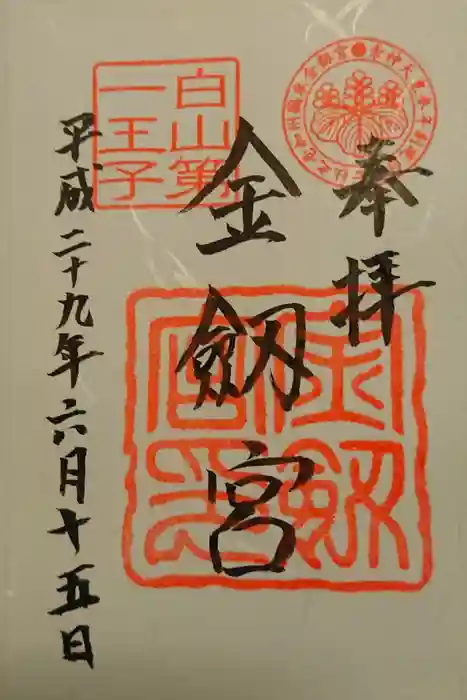 奉拝
金劔宮
平成二十九年六月十五日
白山第
一王子
金劔
宮印